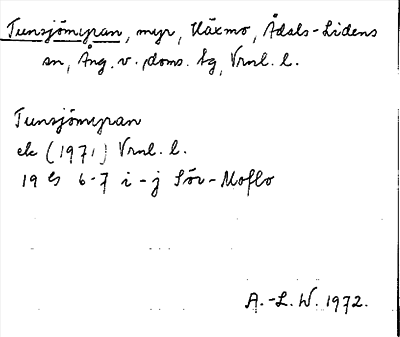 Tunsjömyran, myr, Näxmo, Ådals-Lidens
sn, Ång. v. doms. tg, Vrnl. l.
Tunsjömyran
ek (1971) Vrnl. l.
19 G 6-7 i-j Sör-Moflo
A.-L. W. 1972.